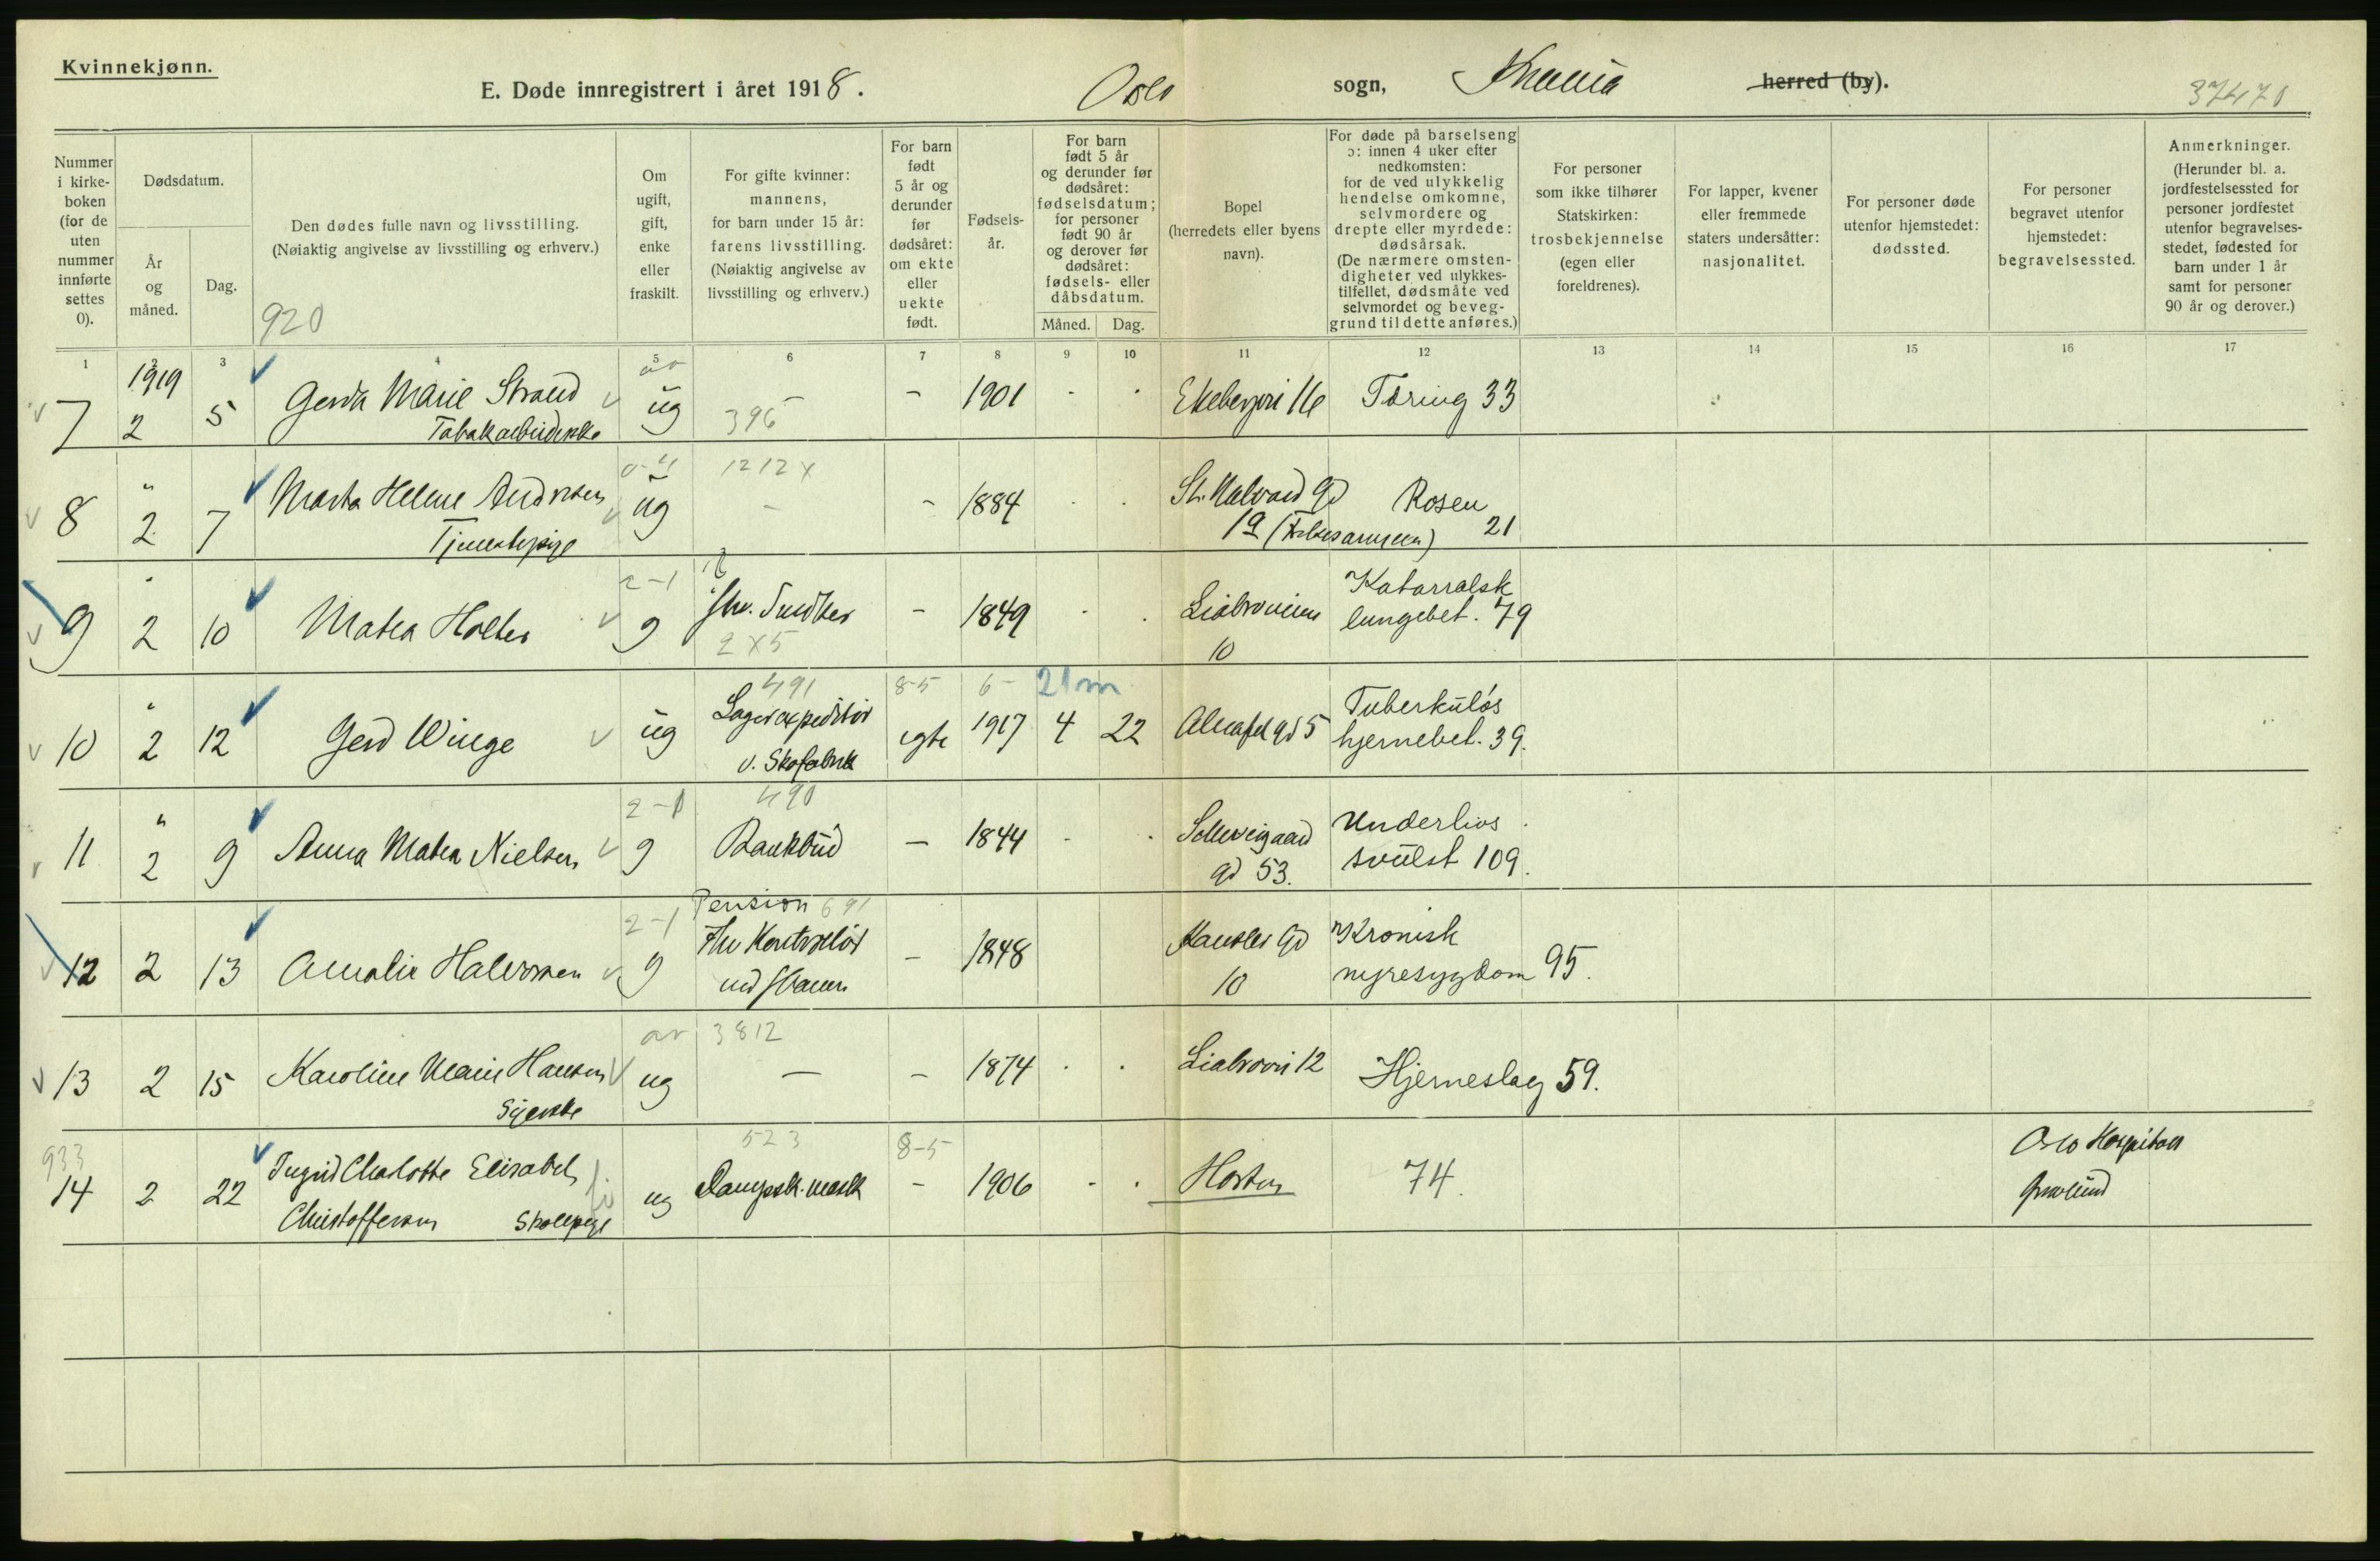 Kvinnekjønn.
E. Døde innregistrert i året 1918. Oslo sogn, herred (by). 37470
Nummer i kirke-boken (for de uten nummer innførte settes 0).
Dødsdatum.
År og måned.
Dag.
Den dødes fulle navn og livsstilling.
(Nøiaktig angivelse av livsstilling og erhverv.)
920
Om ugift, gift, enke eller fraskilt.
For gifte kvinner: mannens, for barn under 15 år: farens livsstilling.
(Nøiaktig angivelse av livsstilling og erhverv.)
For barn født 5 år og derunder før dødsåret: om ekte eller uekte født.
Fødsels-år.
For barn født 5 år og derunder før dødsåret: fødselsdatum; for personer født 90 år og derover før dødsåret: fødsels- eller dåbsdatum.
Måned. Dag.
Bopel (herredets eller byens navn).
For døde på barselseng ɔ: innen 4 uker efter nedkomsten: for de ved ulykkelig hendelse omkomne, selvmordere og drepte eller myrdede: dødsårsak.
(De nærmere omsten-digheter ved ulykkes-tilfellet, dødsmåte ved selvmordet og beveg-grund til dette anføres.)
For personer som ikke tilhører Statskirken: trosbekjennelse (egen eller foreldrenes).
For lapper, kvener eller fremmede staters undersåtter: nasjonalitet.
For personer døde utenfor hjemstedet: dødssted.
For personer begravet utenfor hjemstedet: begravelsessted.
Anmerkninger.
(Herunder bl. a. jordfestelsessted for personer jordfestet utenfor begravelses-stedet, fødested for barn under 1 år samt for personer 90 år og derover.)
1 2 3 4 5 6 7 8 9 10 11 12 13 14 15 16 17
1919
7 2 5 Gerda Marie Strand ug - - 1901 Ekebergvei 16 Tæring 33
Tabakarbeiderske 396
1212 x
8 " 2 7 Marta Helene Andresen ug - - 1884 St. Halvard gd Rosen
Tjenestepige 19 (Frelsesarmeen) 21
2-1
9 " 2 10 Matea Holter g fhv. Snedker - 1849 Liabroveien 10 Katarralsk lungebet. 79
2 x 5
491 8-5 6- 21 m
10 " 2 12 Gerd Winge ug Lagerexpeditør v. Skofabrik egte 1917 4 22 Almafel gd 5 Tuberkuløs hjernebet. 39.
2-1 490
11 " 2 9 Anna Matea Nielsen g Bankbud - 1844 Schweigaard gd 53. Underlivs svulst 109.
2-1 Pension 691
12 2 13 Amalie Halvorsen g fhv Kontrolør ved - 1848 Kansler gd 10 Kronisk nyresygdom 95.
3812
13 2 15 Karoline Marie Hansen ug - - 1874 Liabrovei 12 Hjerneslag 59.
Syerske
933 523 8-5
14 2 22 Ingrid Charlotte Elisabeth ug Dampsk. mask - 1906 Horten 74. Oslo Hospitals
Christoffersen Skolepige Gravlund